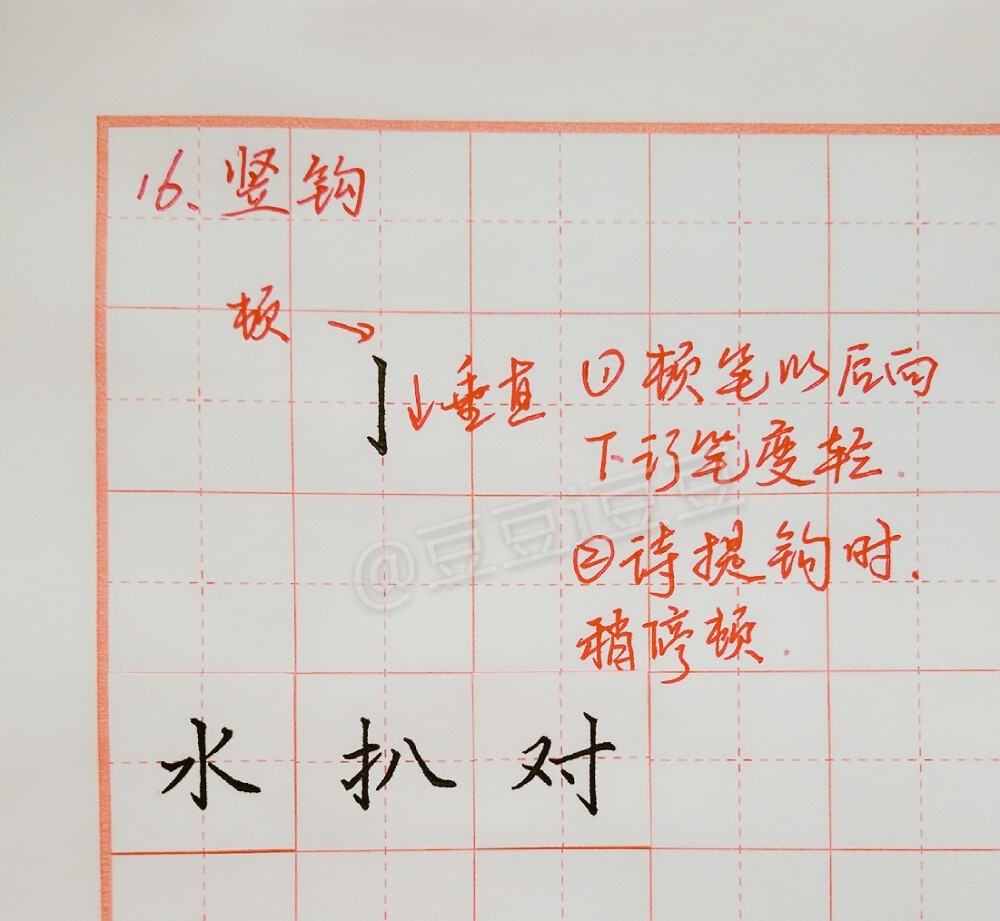 16、竖钩
顿
垂直
①顿笔以后向
下行笔变轻.
@豆豆i豆豆
②待提钩时.
稍停顿.
水 扒 对